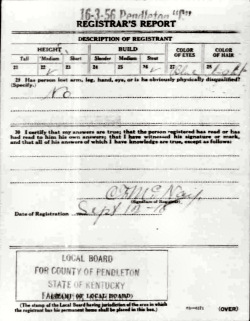 16-3-56 Pendleton "C"
REGISTRAR'S REPORT
DESCRIPTION OF REGISTRANT
HEIGHT BUILD COLOR OF EYES COLOR OF HAIR
Tall Medium Short Slender Medium Stout
21 22 23 24 25 26 27 28
Blue
29 Has person lost arm, leg, hand, eye, or is he obviously physically disqualified?
(Specify.)
No
30 I certify that my answers are true; that the person registered has read or has
had read to him his own answers; that I have witnessed his signature or mark,
and that all of his answers of which I have knowledge are true, except as follows:
(Signature of Registrar)
Date of Registration Sept 12-18
LOCAL BOARD
FOR COUNTY OF PENDLETON
STATE OF KENTUCKY
(STAMP OF LOCAL BOARD)
(The stamp of the Local Board having jurisdiction of the area in which
the registrant has his permanent home shall be placed in this box.)
(OVER)